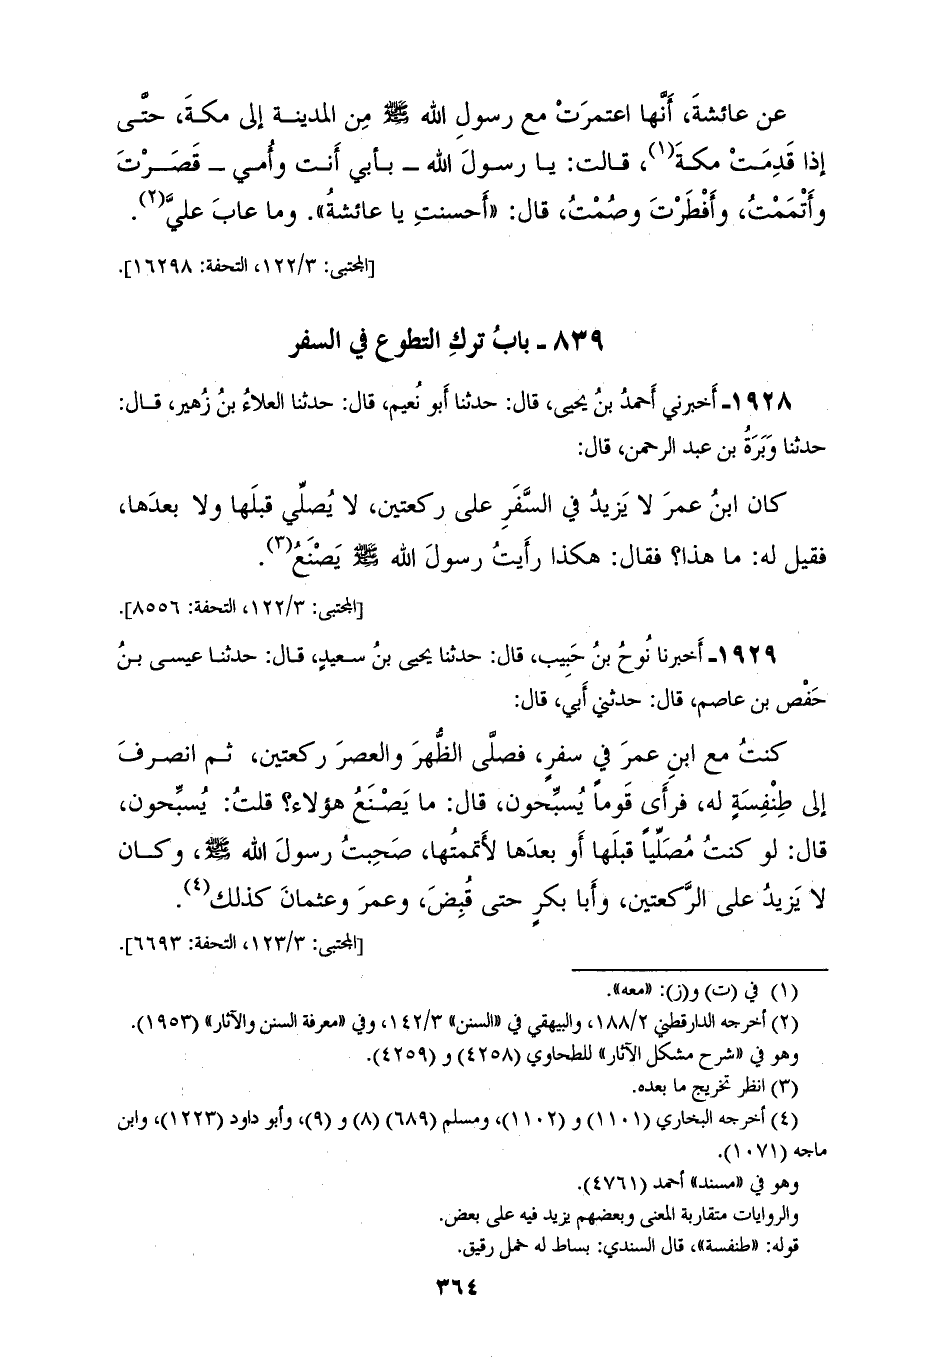 عن عائشةَ، أنَّها اعتمرَتْ مع رسول الله ﷺ مِن المدينـة إلى مكـةَ، حتَّى
إذا قَدِمَـتْ مكـةَ(١)، قـالت: يـا رسـولَ الله ـ بـأبي أنـت وأُمـي ـ قَصَـرْتَ
وأتْمَمْتُ، وأفْطَرْتَ وصُمْتُ، قال: «أحسنتِ يا عائشةُ». وما عابَ عليَّ(٢).
[المجتبى: ١٢٢/٣، التحفة: ١٦٢٩٨].
٨٣٩ ـ بابُ تركِ التطوع في السفر
١٩٢٨ـ أخبرني أحمدُ بنُ يحيى، قال: حدثنا أبو نُعيم، قال: حدثنا العلاءُ بنُ زُهير، قـال:
حدثنا وَبَرَةُ بن عبد الرحمن، قال:
كان ابنُ عمرَ لا يَزيدُ في السَّفَرِ على ركعتين، لا يُصلِّي قبلَها ولا بعدَها،
فقيل له: ما هذا؟ فقال: هكذا رأيتُ رسولَ الله ﷺ يَصْنَعُ(٣).
[المجتبى: ١٢٢/٣، التحفة: ٨٥٥٦].
١٩٢٩ـ أخبرنا نُوحُ بنُ حَبيب، قال: حدثنا يحيى بنُ سـعيدٍ، قـال: حدثنـا عيسـى بـنُ
حَفْص بن عاصم، قال: حدثني أبي، قال:
كنتُ مع ابنِ عمرَ في سفرٍ، فصلَّى الظُّهرَ والعصرَ ركعتين، ثـم انصـرفَ
إلى طِنْفِسَةٍ له، فرأى قَوماً يُسبِّحون، قال: ما يَصْنَعُ هؤلاء؟ قلتُ: يُسبِّحون،
قال: لو كنتُ مُصَلِّياً قبلَها أو بعدَها لأتممتُها، صَحِبتُ رسولَ الله ﷺ، وكـان
لا يَزيدُ على الرَّكعتين، وأبا بكرٍ حتى قُبِضَ، وعمرَ وعثمانَ كذلك(٤).
[المجتبى: ١٢٣/٣، التحفة: ٦٦٩٣].
(١) في (ت) و(ز): «معه».
(٢) أخرجه الدارقطني ١٨٨/٢، والبيهقي في «السنن» ١٤٢/٣، وفي «معرفة السنن والآثار» (١٩٥٣).
وهو في «شرح مشكل الآثار» للطحاوي (٤٢٥٨) و (٤٢٥٩).
(٣) انظر تخريج ما بعده.
(٤) أخرجه البخاري (١١٠١) و (١١٠٢)، ومسلم (٦٨٩) (٨) و (٩)، وأبو داود (١٢٢٣)، وابن
ماجه (١٠٧١).
وهو في «مسند» أحمد (٤٧٦١).
والروايات متقاربة المعنى وبعضهم يزيد فيه على بعض.
قوله: «طنفسة»، قال السندي: بساط له خمل رقيق.
٣٦٤